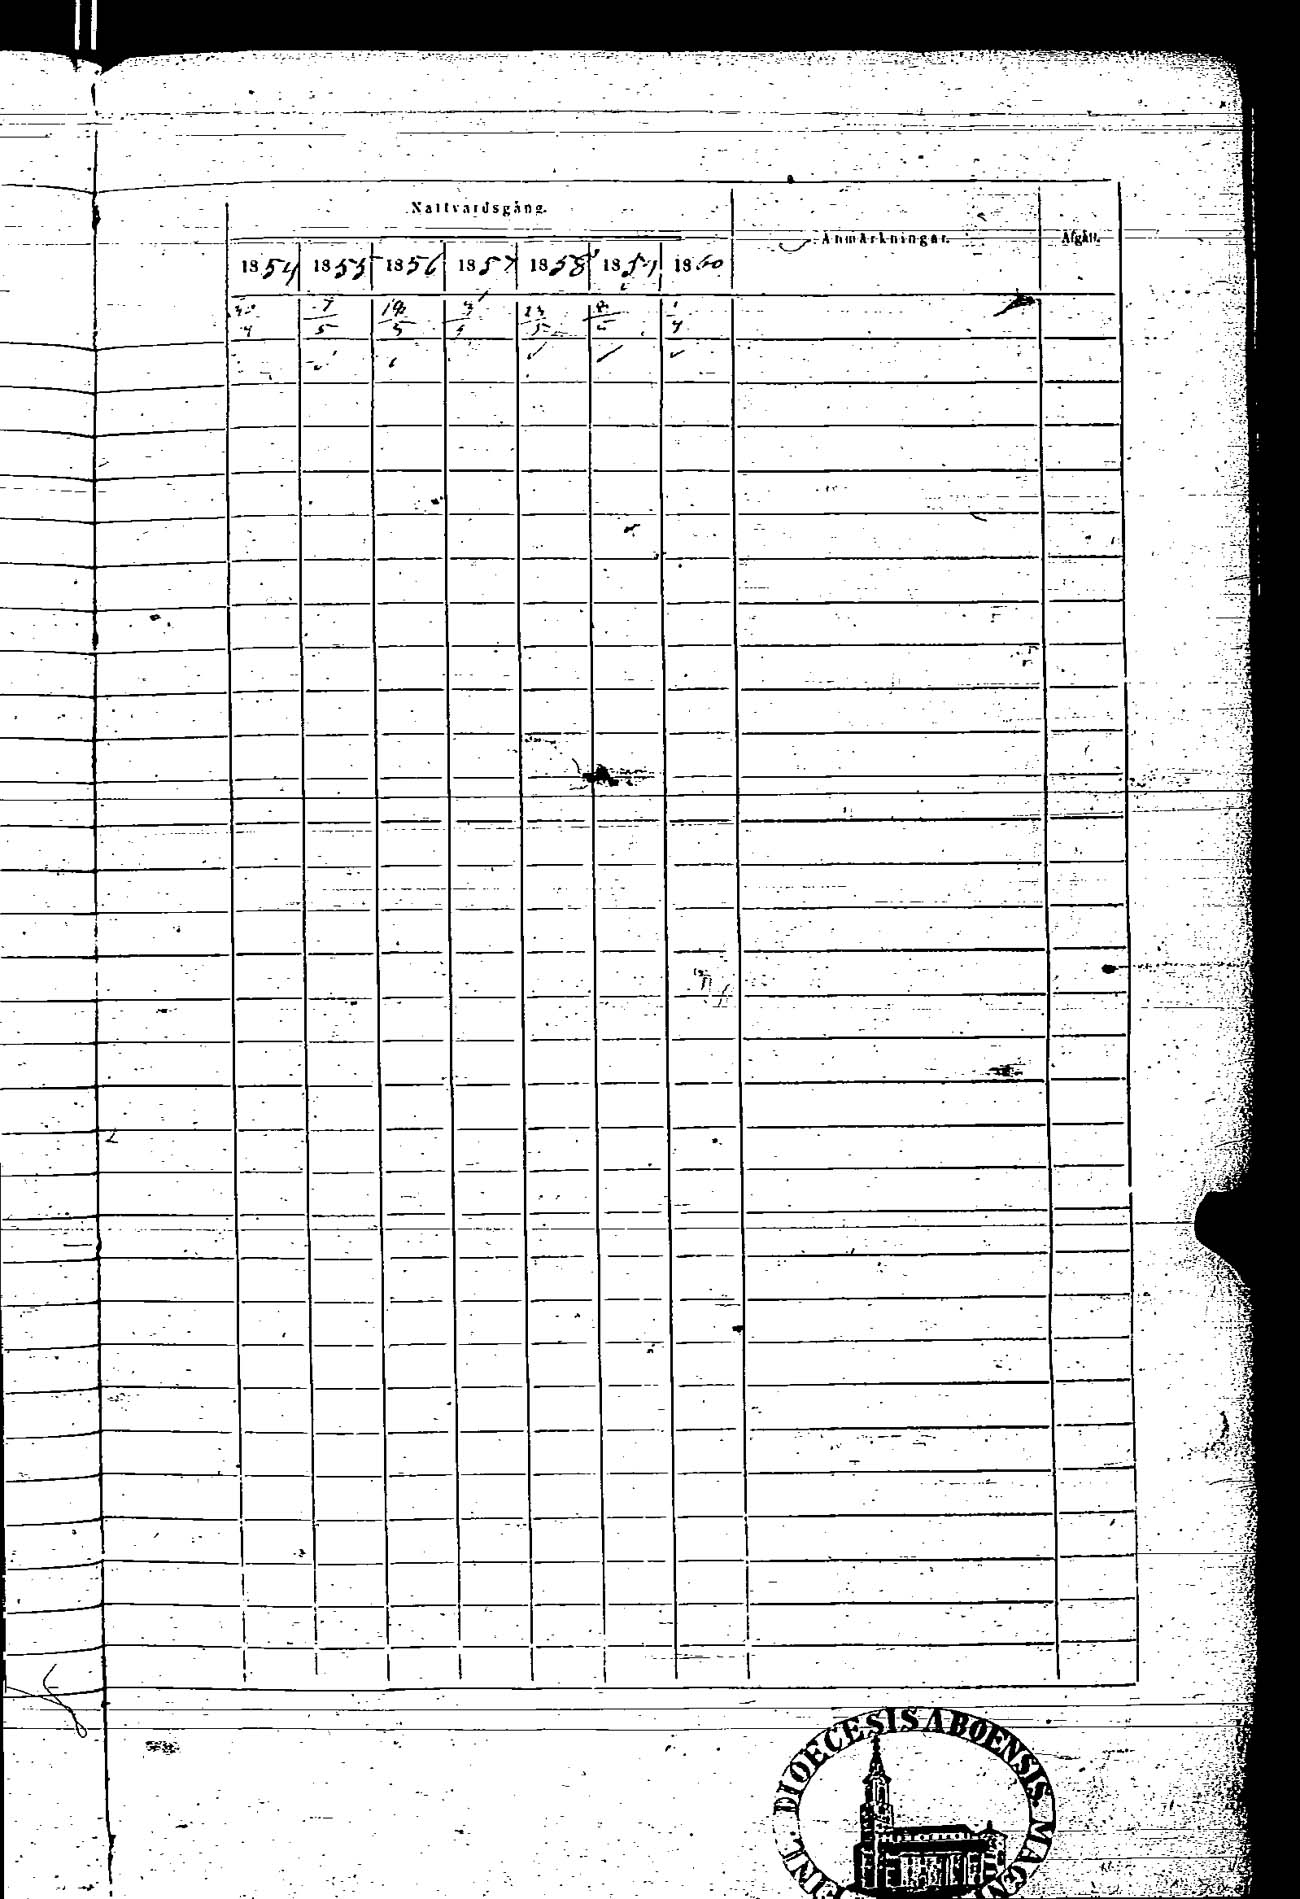 Nattvardsgång.
Anmärkningar.
Afgått.
1854 1855 1856 1857 1858 1859 1860
7/5 19/5 23/5
DIOECESIS ABOENSIS MAGNI
FINL.